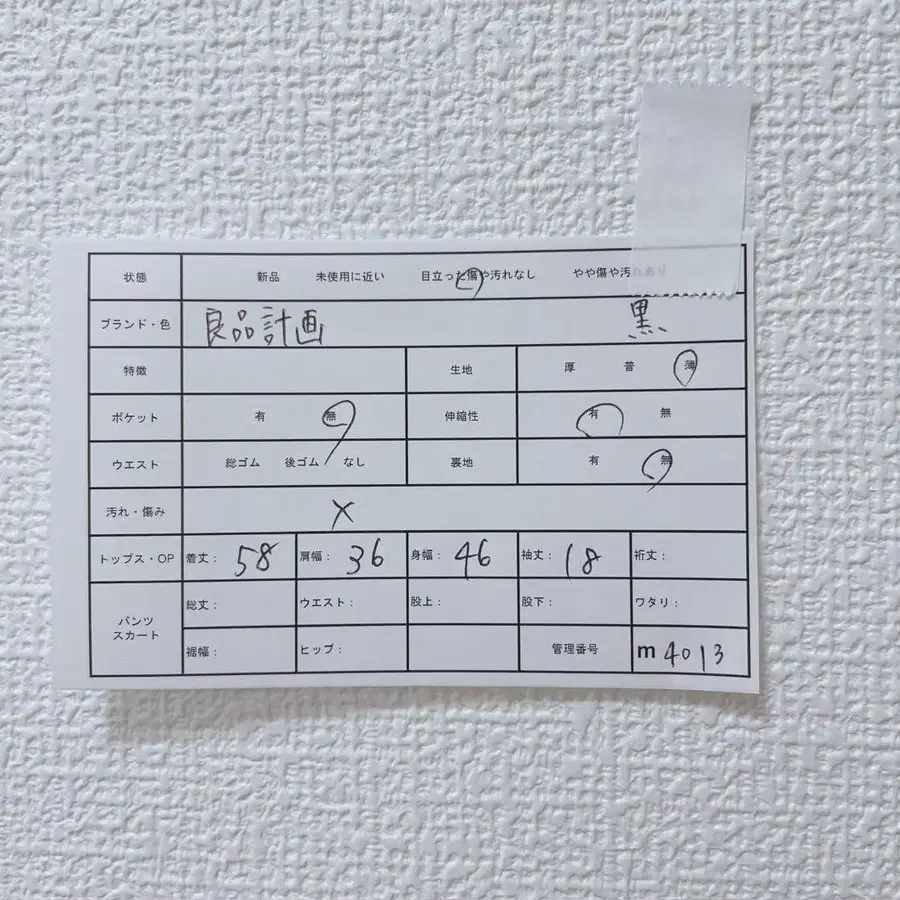 状態 新品 未使用に近い 目立った傷や汚れなし やや傷や汚れあり
ブランド・色 良品計画 黒
特徴 生地 厚 普 薄
ポケット 有 無 伸縮性 有 無
ウエスト 総ゴム 後ゴム なし 裏地 有 無
汚れ・傷み ×
トップス・OP 着丈: 58 肩幅: 36 身幅: 46 袖丈: 18 裄丈:
パンツ スカート 総丈: ウエスト: 股上: 股下: ワタリ:
裾幅: ヒップ: 管理番号 m 4013